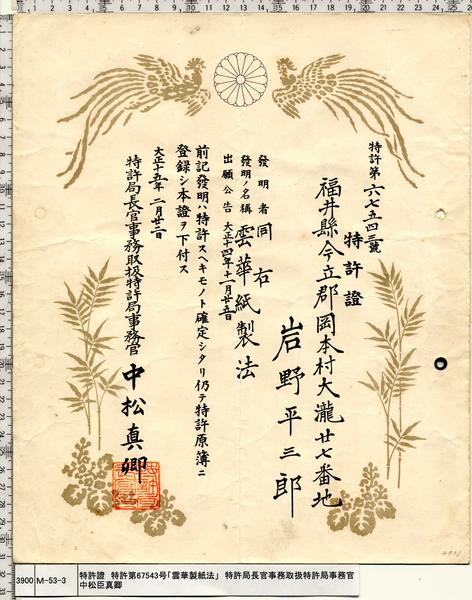 特許第六七五四三號
特許證
福井縣今立郡岡本村大瀧廿七番地
岩野平三郎
發明者 同右
發明ノ名稱 雲華紙製法
出願公告 大正十四年十一月廿五日
前記發明ハ特許スヘキモノト確定シタリ仍テ特許原簿ニ
登録シ本證ヲ下付ス
大正十五年二月廿二日
特許局長官事務取扱特許局事務官 中松真卿
3900 M-53-3 特許證 特許第67543号「雲華製紙法」 特許局長官事務取扱特許局事務官
中松臣真卿